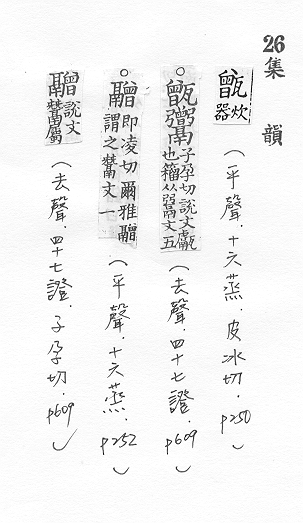 26集韻
甑炊器(平聲.十六蒸.皮冰切.P250)
甑䰝子孕切說文甗也籀从䰜文五(去聲.四十七證.P609)
䰝即凌切爾雅䰝謂之鬵文一(平聲.十六蒸.P252)
䰝說文鬵屬(去聲.四十七證.子孕切.P609)